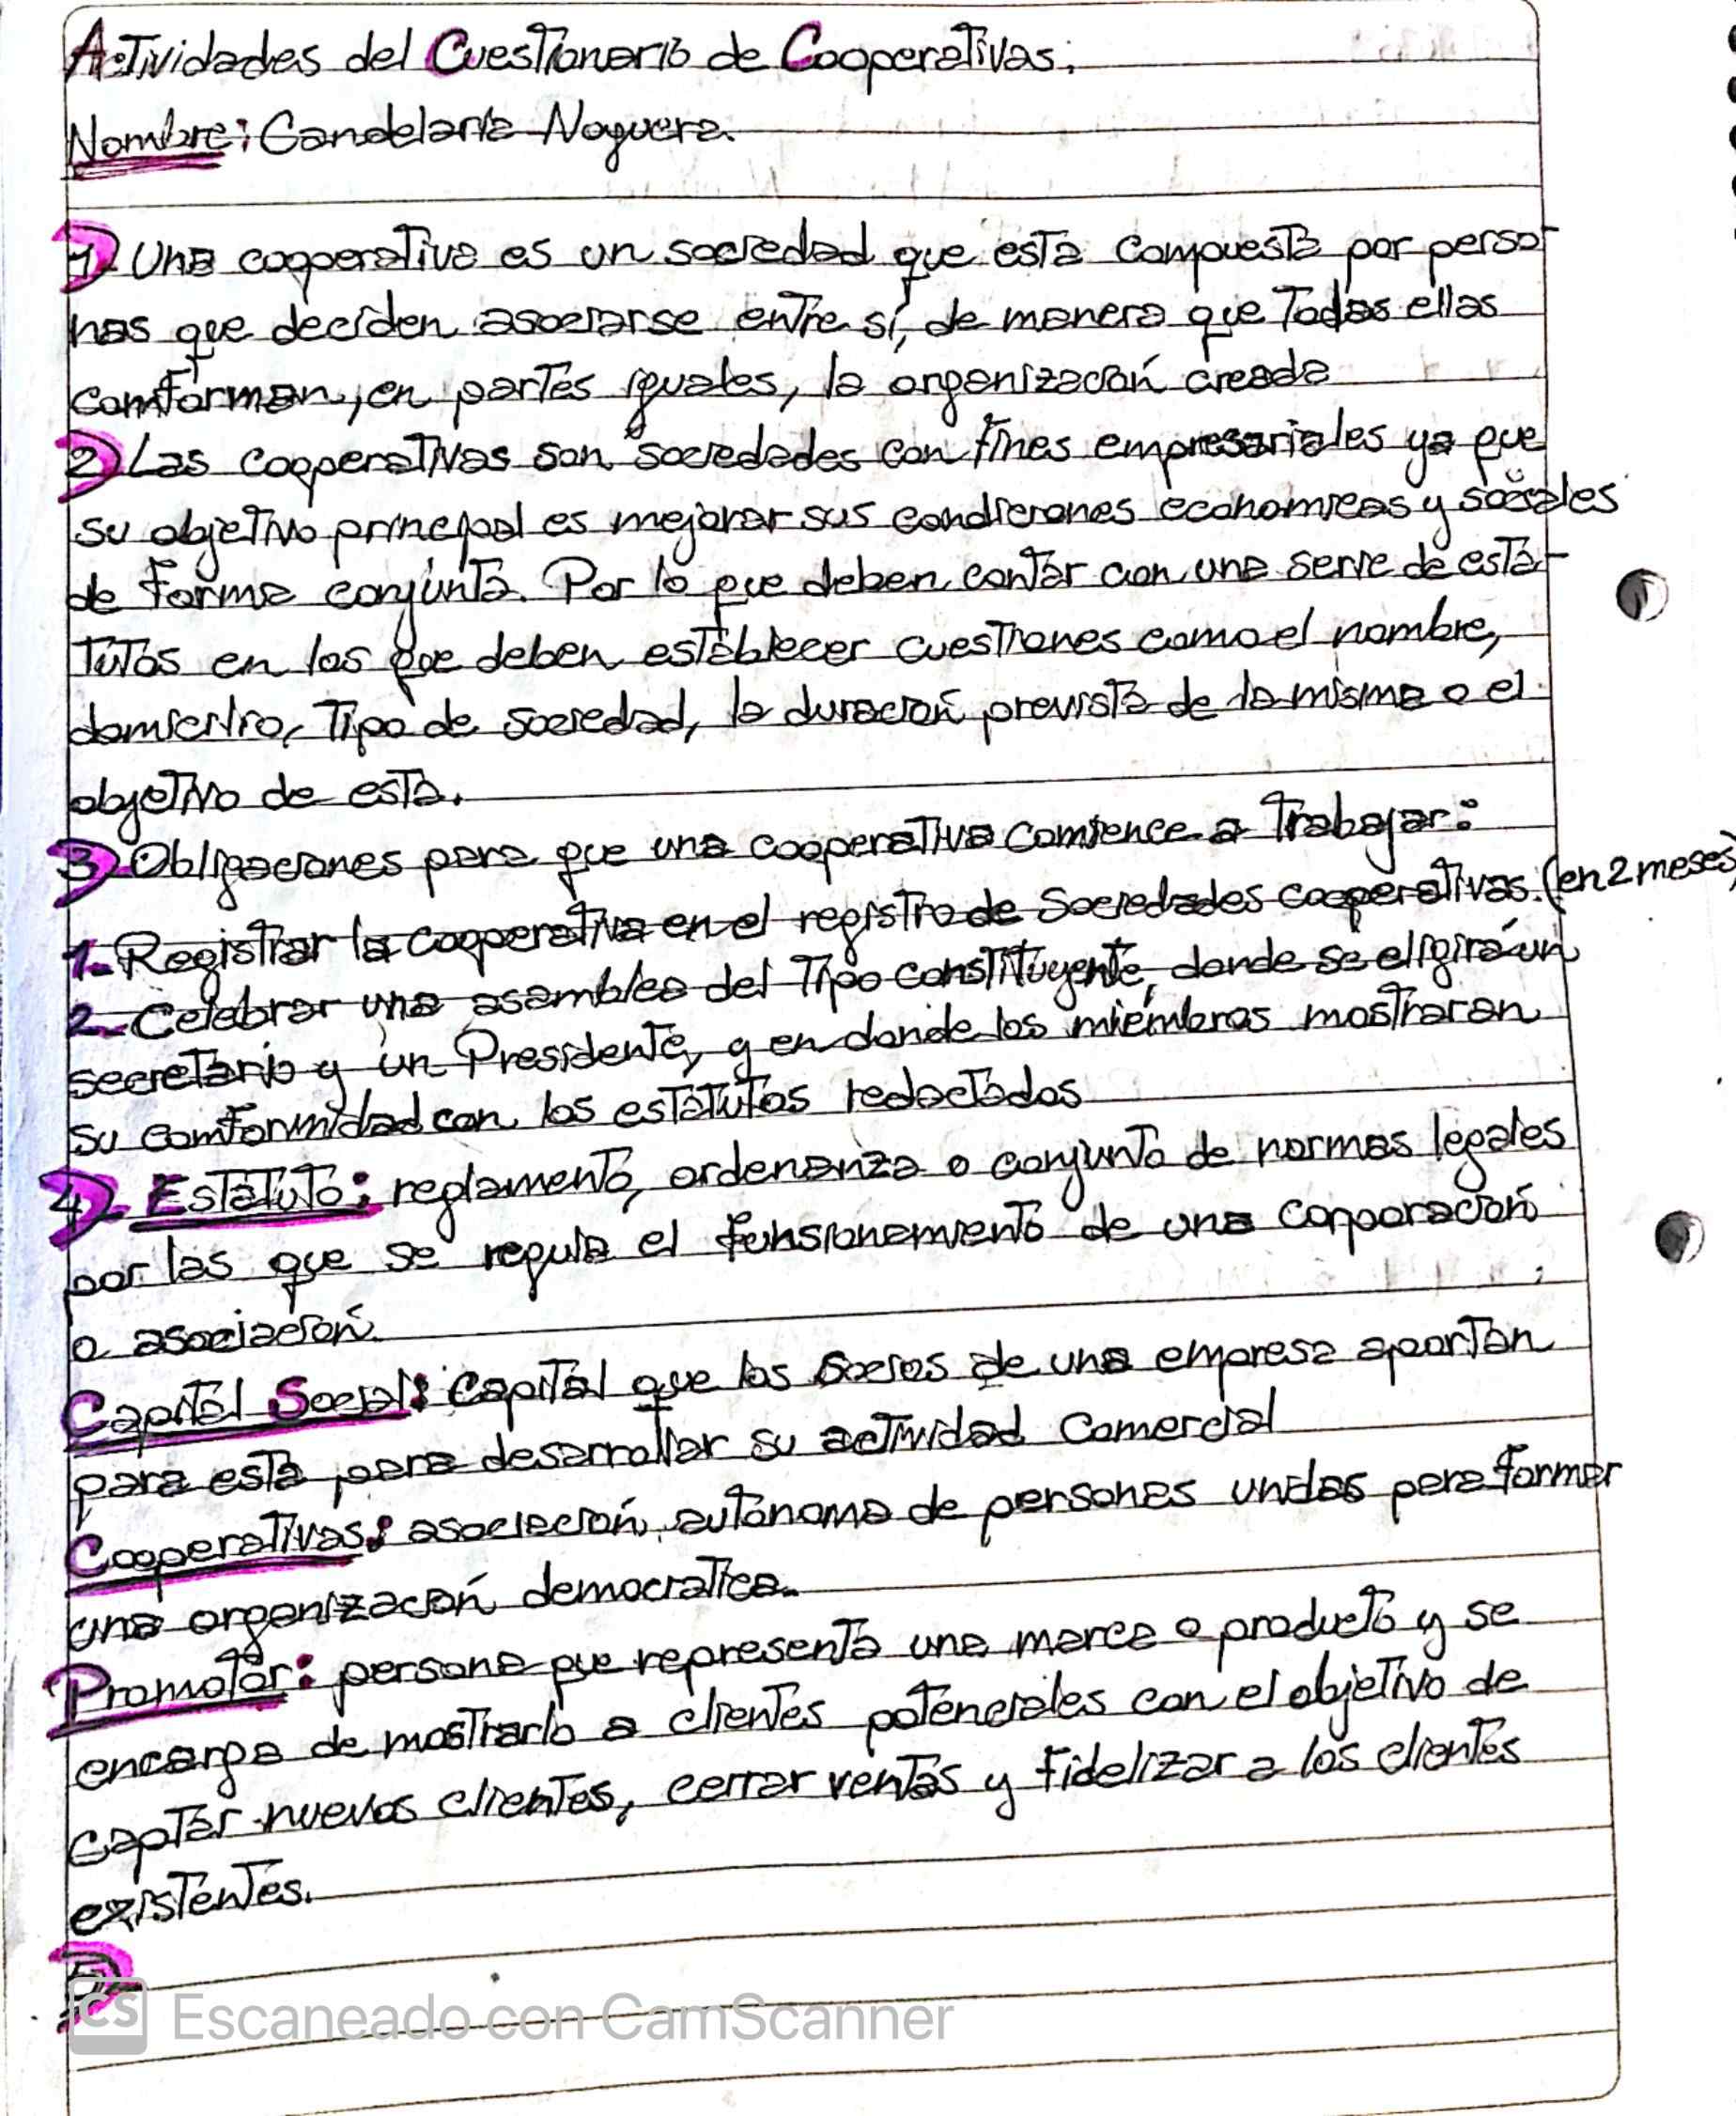 Actividades del Cuestionario de Cooperativas.
Nombre: Candelaria Noguera.
1) Una cooperativa es un sociedad que esta compuesta por perso-
nas que deciden asociarse entre sí, de manera que Todas ellas
comforman, en partes iguales, la organización creada
2) Las cooperativas son sociedades con fines empresariales ya que
su objetivo principal es mejorar sus condiciones economicas y sociales
de forma conjunta. Por lo que deben contar con una serie de esta-
tutos en los que deben establecer cuestiones como el nombre,
domicilio, Tipo de sociedad, la duración prevista de la misma o el
objetivo de esta.
3) Obligaciones para que una cooperativa comience a Trabajar:
1- Registrar la cooperativa en el registro de Sociedades cooperativas. (en 2 meses)
2- Celebrar una asamblea del Tipo constituyente, donde se eligirá un
secretario y un Presidente, y en donde los miembros mostraran
su comformidad con los estatutos redactados
4)- Estatuto: reglamento, ordenanza o conjunto de normas legales
por las que se regula el funsionamiento de una corporación
o asociación.
Capital Social: Capital que los socios de una empresa aportan
para esta para desarrollar su actividad Comercial
Cooperativas: asociación autónoma de personas unidas para formar
una organización democratica.
Promotor: persona que representa una marca o producto y se
encarga de mostrarlo a clientes potenciales con el objetivo de
captar nuevos clientes, cerrar ventas y fidelizar a los clientes
existentes.
5)
CS Escaneado con CamScanner